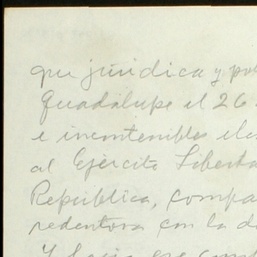 que jurídica y po
Guadalupe el 26
e incontenibles ele
al Ejército Liberta
República, compa
redentora con la d
Y bajo ese com